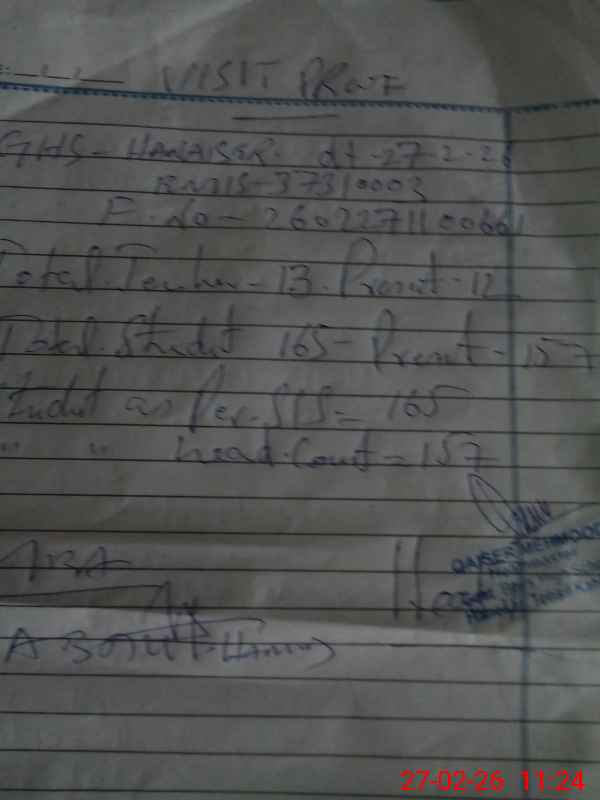 VISIT PROOF
GHS - HARAISER. dt -27-2-26
EMIS-37310003
F. No - 2602271100661
Total. Teacher - 13. Present - 12
Total. Student 165 - Present - 157
Student as Per. SIS = 165
" " head. Count = 157
QAISER MEHMOOD
AEA
27-02-26 11:24